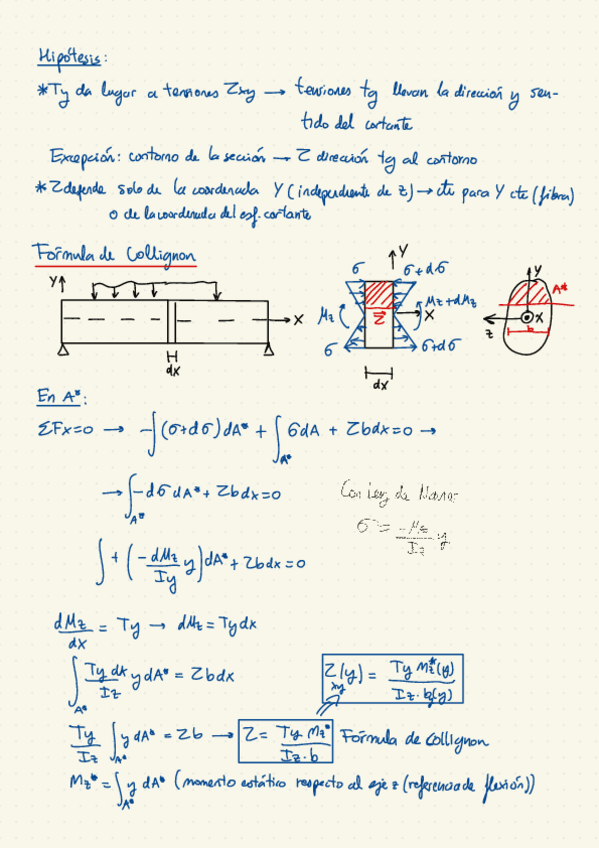 Hipótesis:
*Ty da lugar a tensiones τxy → tensiones tg llevan la dirección y sen-
tido del cortante
Excepción: contorno de la sección → τ dirección tg al contorno
*τ depende solo de la coordenada Y (independiente de z) → cte para Y cte (fibra)
o de la coordenada del esf. cortante
Fórmula de Collignon
Y
X
dx
σ
σ+dσ
Y
Mz
τ
Mz+dMz
X
σ
σ+dσ
dx
Y
A*
X
z
b
En A*:
ΣFx=0 → -∫(σ+dσ)dA* + ∫A* σdA + τbdx=0 →
→ ∫A* -dσdA* + τbdx=0
Con ley de Navier
σ = -Mz/Iz · y
∫ + (-dMz/Iy y)dA* + τbdx=0
dMz/dx = Ty → dMz = Tydx
∫A* Tydx/Iz ydA* = τbdx
τxy(y) = Ty Mz*(y)/Iz·bz(y)
Ty/Iz ∫A* ydA* = τb → τ = Ty Mz*/Iz·b Fórmula de Collignon
Mz* = ∫A* y dA* (momento estático respecto al eje z (referencia de flexión))